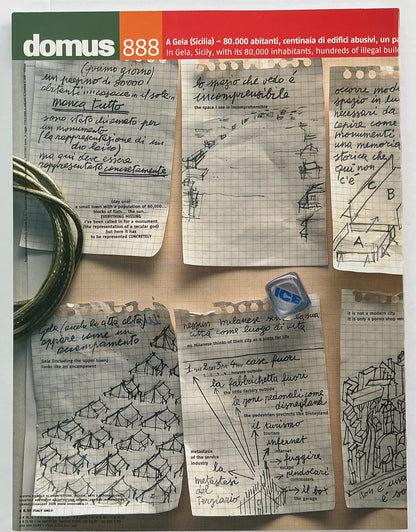 domus 888
A Gela (Sicilia) – 80.000 abitanti, centinaia di edifici abusivi, un pa
In Gela, Sicily, with its 80,000 inhabitants, hundreds of illegal buil
(primo giorno)
un paesino di 80000
abitanti
manca tutto
sono stato chiamato per
un monumento
(la rappresentazione di un
dio laico)
ma qui deve essere
rappresentato concretamente
(day one)
a small town with a population of 80,000...
blocks of flats... the sun...
EVERYTHING MISSING
i've been called in for a monument
(the representation of a secular god)
but here it has
to be represented CONCRETELY
lo spazio che vedo è
incomprensibile
the space i see is incomprehensible
occorre
spazio in
necessari da
capire come
monumenti
una memoria
storica che
qui non
c'è
C
B
A
ICE
Gela (anche la città alta)
appare come un
accampamento
Gela (including the upper town)
looks like an encampment
nessun milanese
città come luogo di vita
no Milanese thinks of their city as a place for life
1a 2a 3a 4a case fuori
houses outside
la fabbrichetta fuori
the little factory outside
le zone pedonali come
disneyland
the pedestrian precincts like Disneyland
il turismo
tourism
internet
internet
fuggire
escape
pendolari
commuters
il box
the garage
metastasis
of the service
industry
la
metastasi
del
terziario
it is not a modern city
it is only a porno shop
non è
è so
ITALY ONLY